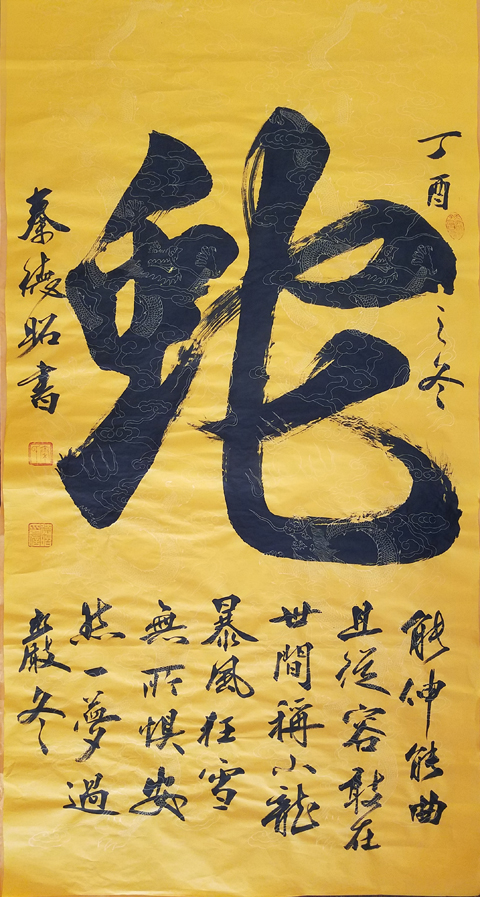 丁酉之冬
蛇
能伸能曲
且從容敢在
世間稱小龍
暴風狂雪
無所懼安
然一夢過
嚴冬
秦德昭書